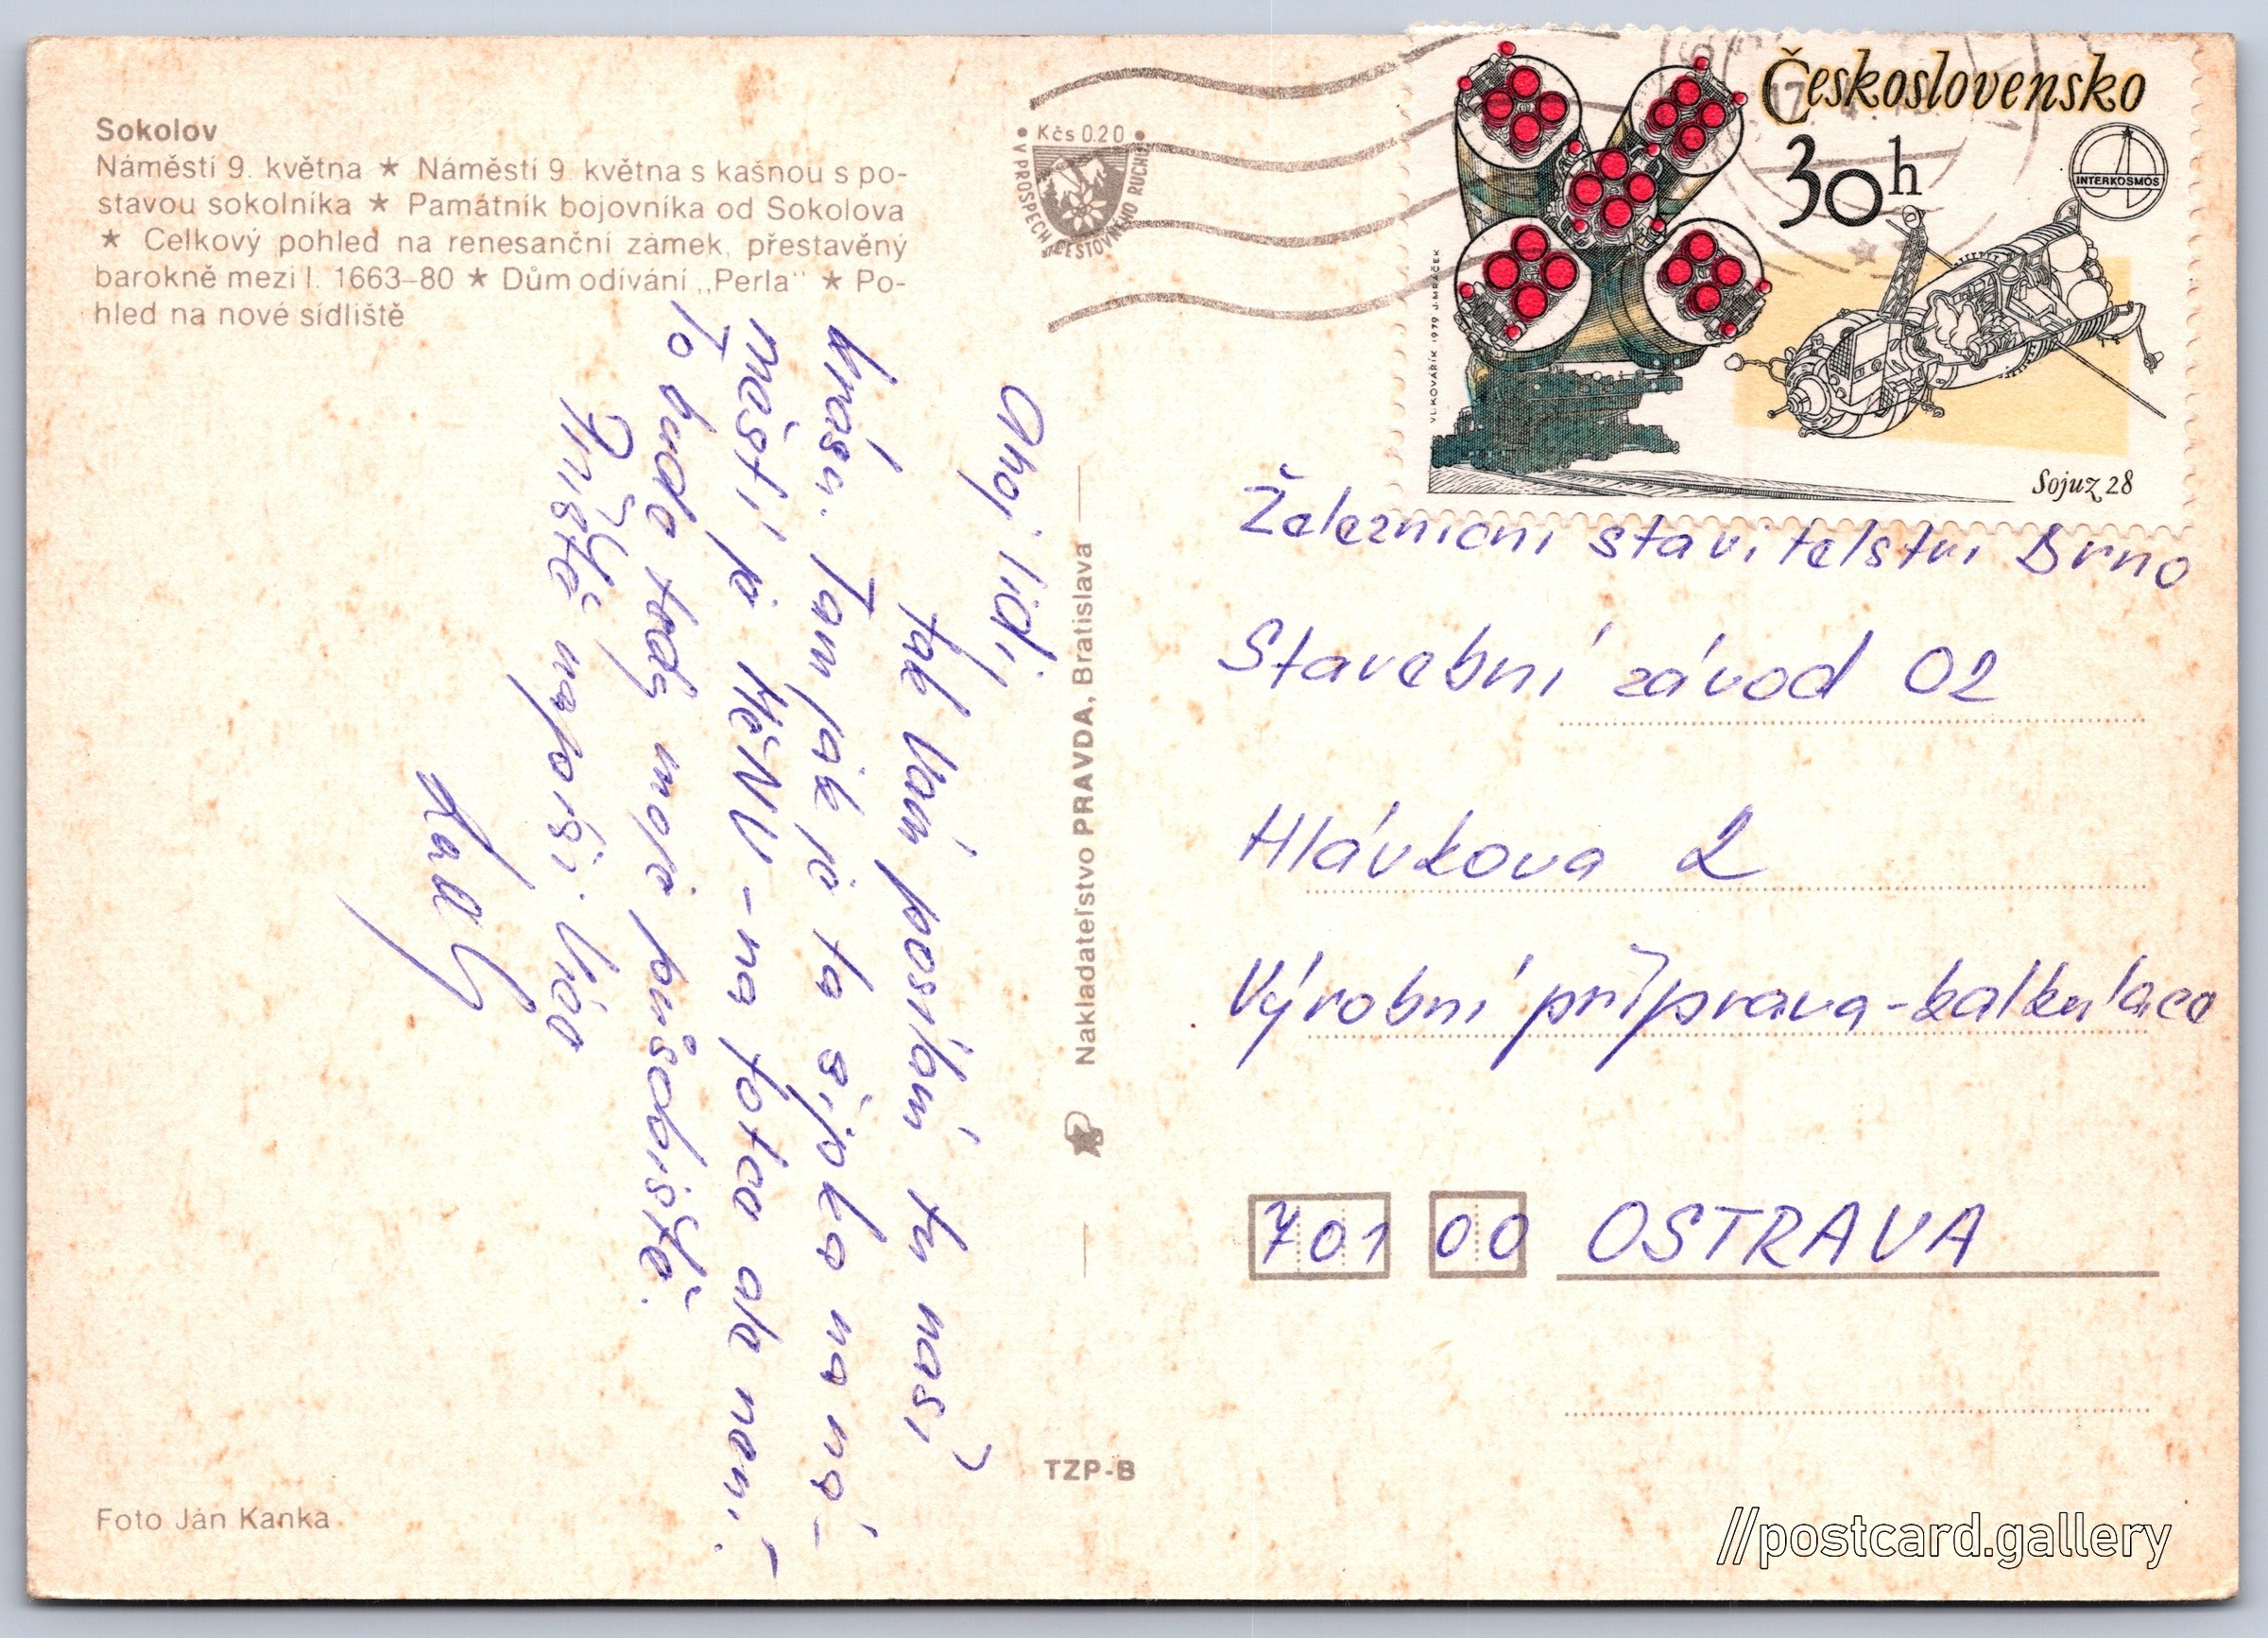 Sokolov
Náměstí 9. května ★ Náměstí 9. května s kašnou s po-
stavou sokolníka ★ Památník bojovníka od Sokolova
★ Celkový pohled na renesanční zámek, přestavěný
barokně mezi l. 1663–80 ★ Dům odívání „Perla“ ★ Po-
hled na nové sídliště
Ahoj lidi,
tak Vám posílám tu naší
krásu. Tam jak je ta šipka na ná-
městí je MěNV - na fotce ale není.
To bude tedy moje působiště.
Příště napíši více
Foto Ján Kanka
Nakladateľstvo PRAVDA, Bratislava
TZP-B
Kčs 0.20
V PROSPECH CELŠTOVNÉHO RUCHU
Československo
30h
INTERKOSMOS
Sojuz 28
VL. KOVÁŘÍK 1979 J. MRÁČEK
Železnični stavitelství Brno
Stavební závod 02
Hlávkova 2
Výrobní příprava-kalkulace
701 00 OSTRAVA
//postcard.gallery